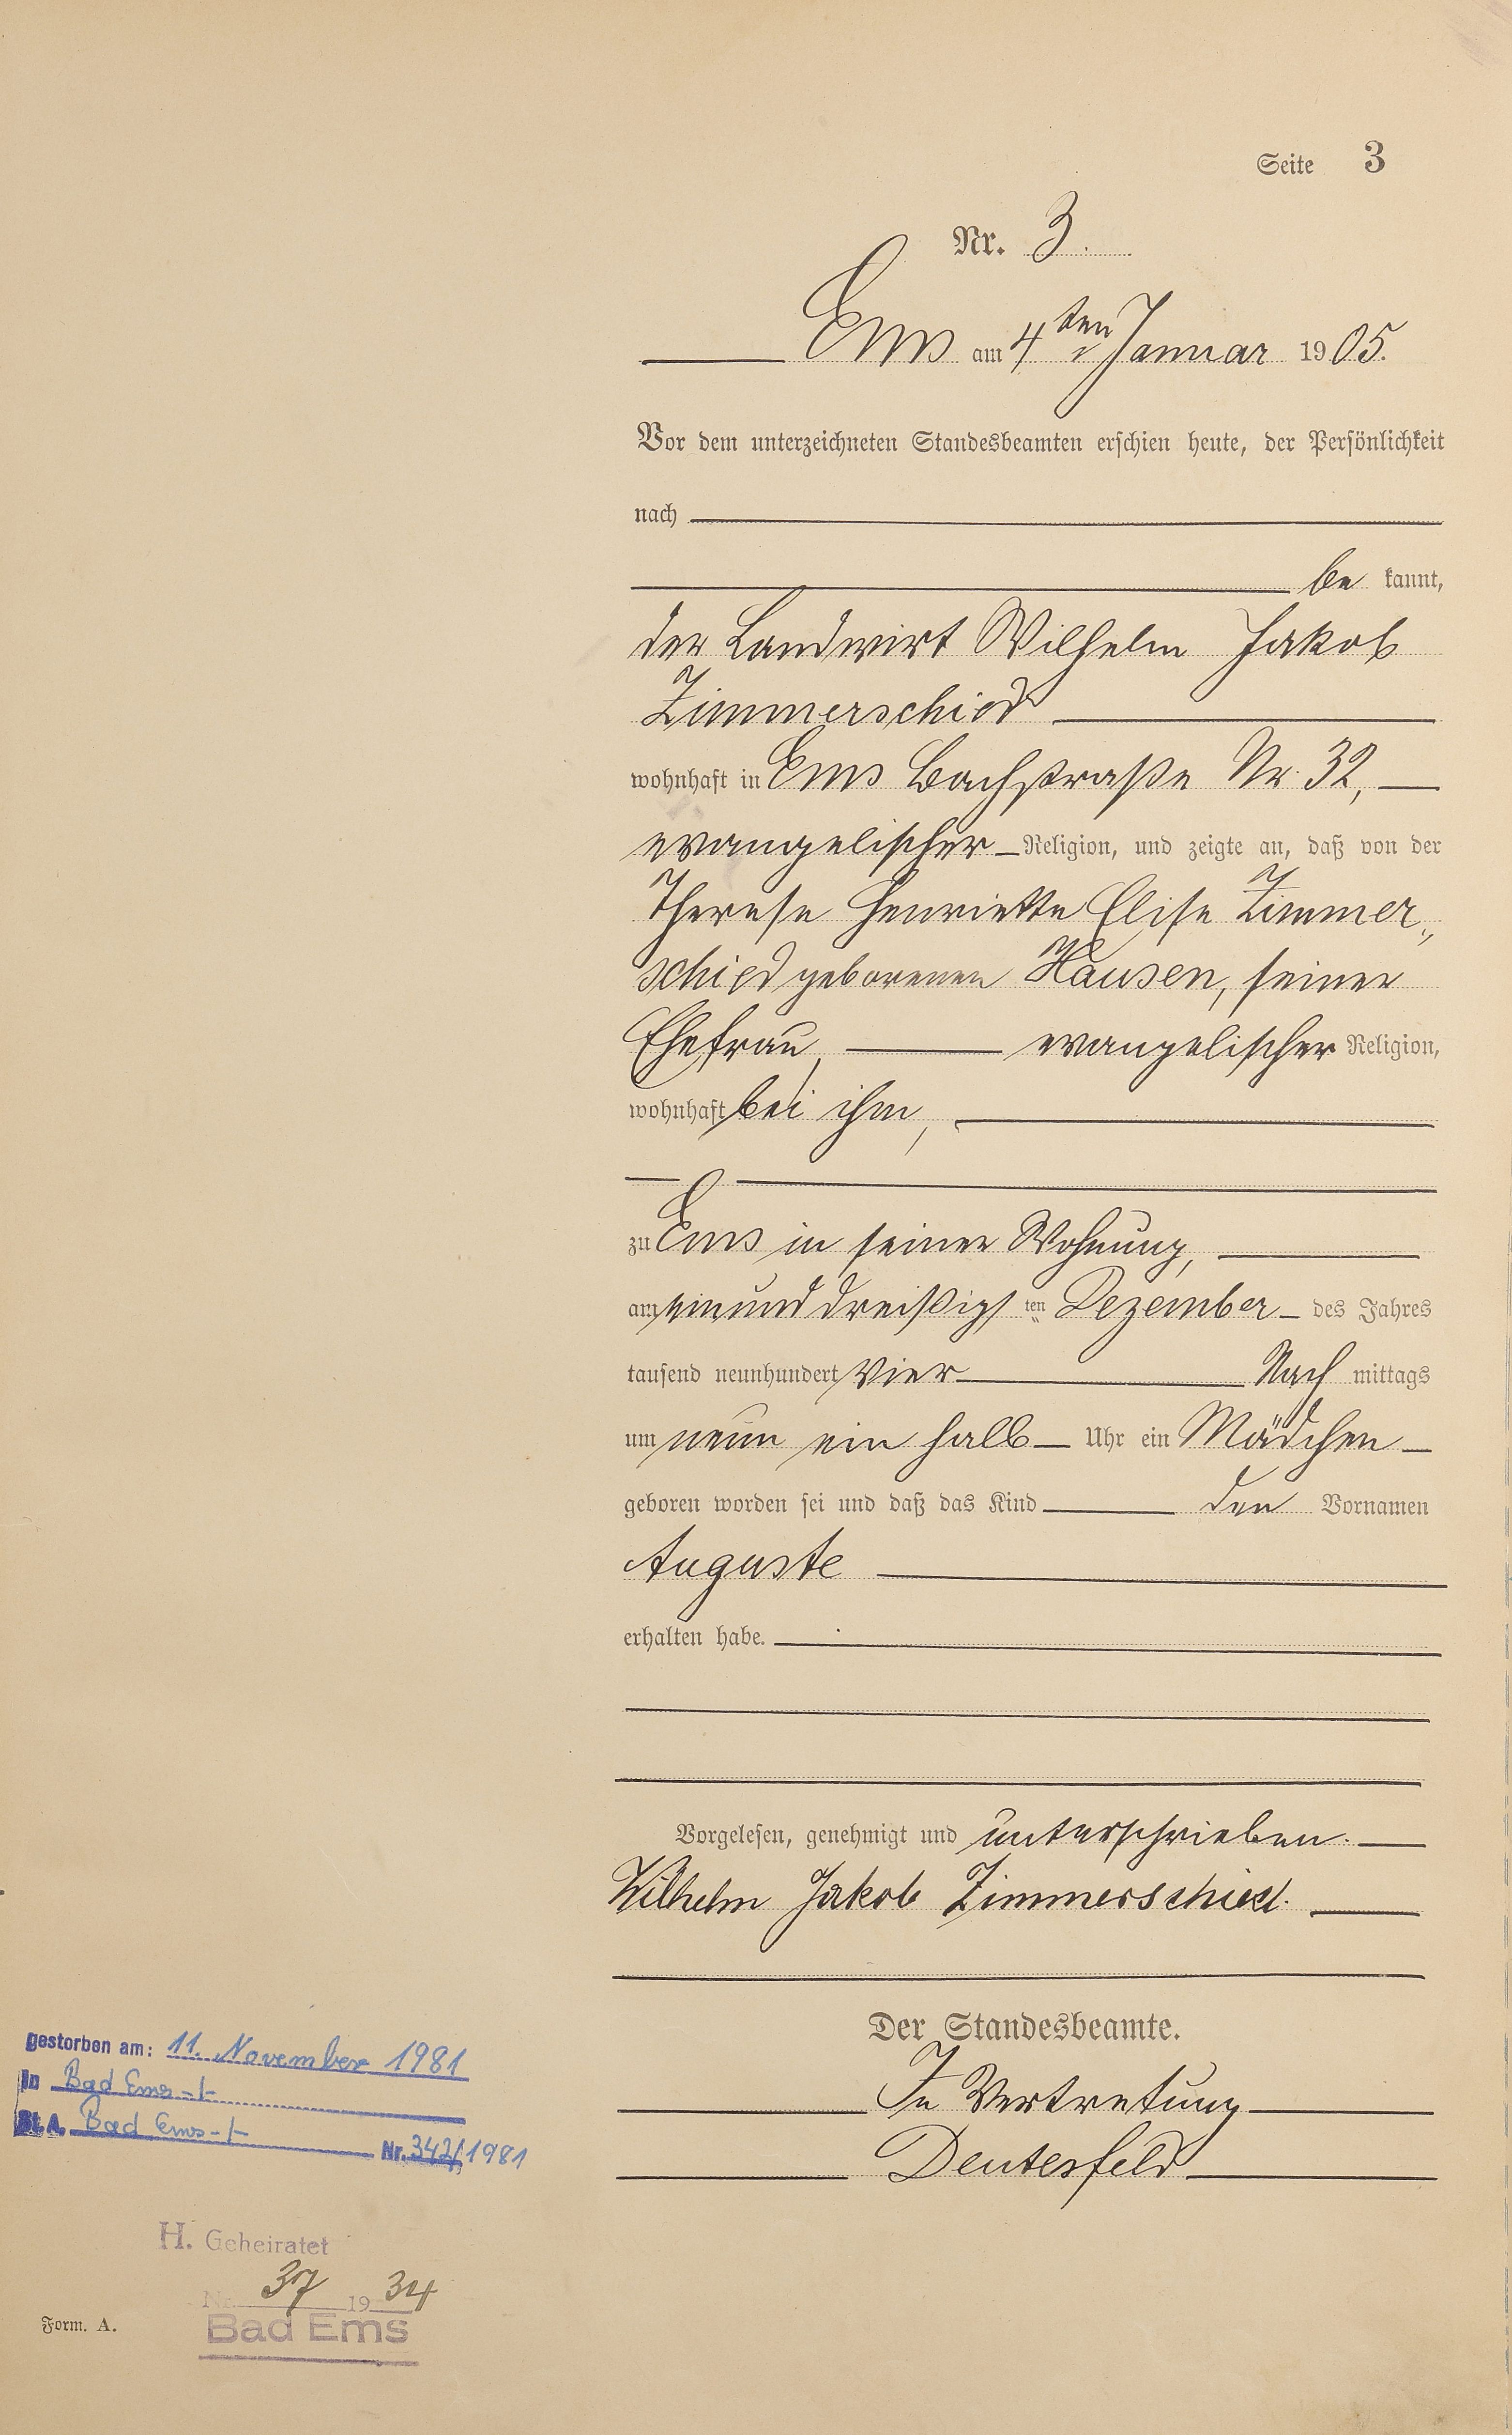 Seite 3
Nr. 3.
Ems am 4ten Januar 1905.
Vor dem unterzeichneten Standesbeamten erschien heute, der Persönlichkeit
nach
be kannt,
der Landwirt Wilhelm Jakob
Zimmerschied
wohnhaft in Ems Bachstraße Nr. 32,
evangelischer Religion, und zeigte an, daß von der
Therese Henriette Elise Zimmer„
schied geborenen Hausen, seiner
Ehefrau, evangelischer Religion,
wohnhaft bei ihm,
zu Ems in seiner Wohnung,
am einund dreißigsten Dezember des Jahres
tausend neunhundert vier Nach mittags
um neun ein halb Uhr ein Mädchen
geboren worden sei und daß das Kind den Vornamen
Auguste
erhalten habe.
Vorgelesen, genehmigt und unterschrieben.
Wilhelm Jakob Zimmerschied.
Der Standesbeamte.
In Vertretung
Deutesfeld
gestorben am: 11. November 1981
In Bad Ems -/-
St. A. Bad Ems -/-
Nr. 342/1981
H. Geheiratet
Nr. 37 1934
Bad Ems
Form. A.